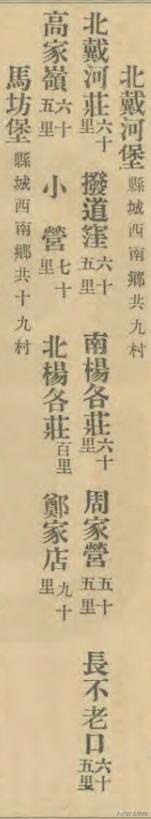 北戴河堡縣城西南鄉共九村
北戴河莊六十里 撥道窪六十五里 南楊各莊六十里 周家營五十五里 長不老口六十五里
高家嶺六十五里 小營七十里 北楊各莊百里 鄭家店九十里
馬坊堡縣城西南鄉共十九村